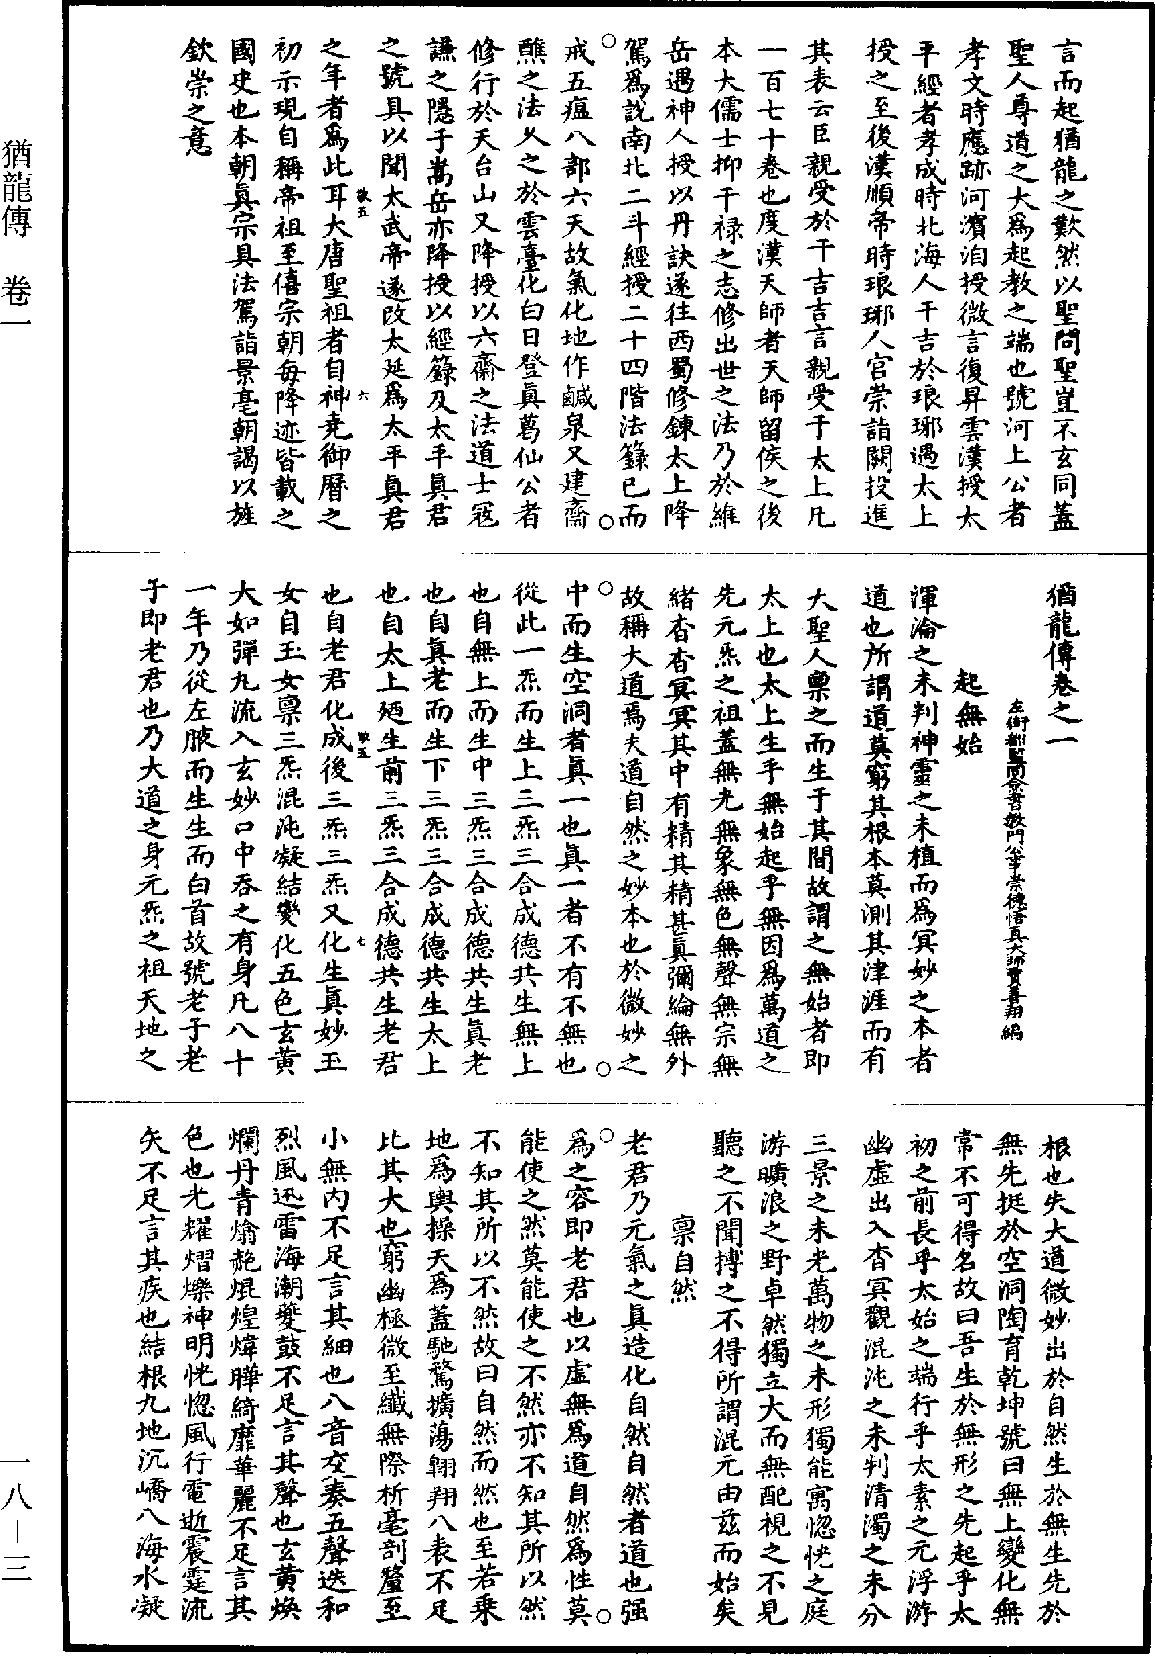 猶龍傳　卷一
一八—三
言而起猶龍之歎然以聖問聖豈不玄同蓋
聖人尊道之大爲起教之端也號河上公者
孝文時應跡河濱洎授微言復昇雲漢授太
平經者孝成時北海人干吉於琅琊遇太上
授之至後漢順帝時琅琊人宮崇詣闕投進
其表云臣親受於干吉吉言親受于太上凡
一百七十卷也度漢天師者天師留侯之後
本大儒士抑干祿之志修出世之法乃於維
岳遇神人授以丹訣遂往西蜀修鍊太上降
駕爲說南北二斗經授二十四階法籙已而
戒五瘟八部六天故氣化地作鹹泉又建齋
醮之法久之於雲臺化白日登眞葛仙公者
修行於天台山又降授以六齋之法道士寇
謙之隱于嵩岳亦降授以經籙及太平眞君
之號具以聞太武帝遂改太延爲太平眞君
之年者爲此耳大唐聖祖者自神堯御曆之
初示現自稱帝祖至僖宗朝每降迹皆載之
國史也本朝眞宗具法駕詣景亳朝謁以旌
欽崇之意
敢五
六
猶龍傳卷之一
左街都監同僉書敎門公事崇德悟眞大師賈善翔編
起無始
渾淪之未判神靈之未植而爲冥妙之本者
道也所謂道莫窮其根本莫測其津涯而有
大聖人稟之而生于其間故謂之無始者即
太上也太上生乎無始起乎無因爲萬道之
先元炁之祖蓋無光無象無色無聲無宗無
緒杳杳冥冥其中有精其精甚眞彌綸無外
故稱大道焉夫道自然之妙本也於微妙之
中而生空洞者眞一也眞一者不有不無也
從此一炁而生上三炁三合成德共生無上
也自無上而生中三炁三合成德共生眞老
也自眞老而生下三炁三合成德共生太上
也自太上廼生前三炁三合成德共生老君
也自老君化成後三炁三炁又化生眞妙玉
女自玉女禀三炁混沌凝結變化五色玄黃
大如彈丸流入玄妙口中吞之有身凡八十
一年乃從左腋而生生而白首故號老子老
子即老君也乃大道之身元炁之祖天地之
敢五
七
根也夫大道微妙出於自然生於無生先於
無先挺於空洞陶育乾坤號曰無上變化無
常不可得名故曰吾生於無形之先起乎太
初之前長乎太始之端行乎太素之元浮游
幽虛出入杳冥觀混沌之未判清濁之未分
三景之未光萬物之未形獨能寓惚恍之庭
游曠浪之野卓然獨立大而無配視之不見
聽之不聞搏之不得所謂混元由茲而始矣
禀自然
老君乃元氣之眞造化自然自然者道也强
爲之容即老君也以虛無爲道自然爲性莫
能使之然莫能使之不然亦不知其所以然
不知其所以不然故曰自然而然也至若乘
地爲輿操天爲蓋馳騖擴蕩翱翔八表不足
比其大也窮幽極微至纖無際析毫剖釐至
小無內不足言其細也八音交奏五聲迭和
烈風迅雷海潮夔鼓不足言其聲也玄黃煥
爛丹青爚赩焜煌煒曄綺靡華麗不足言其
色也光耀熠爍神明恍惚風行電逝震霆流
矢不足言其疾也結根九地沉嶠八海水凝